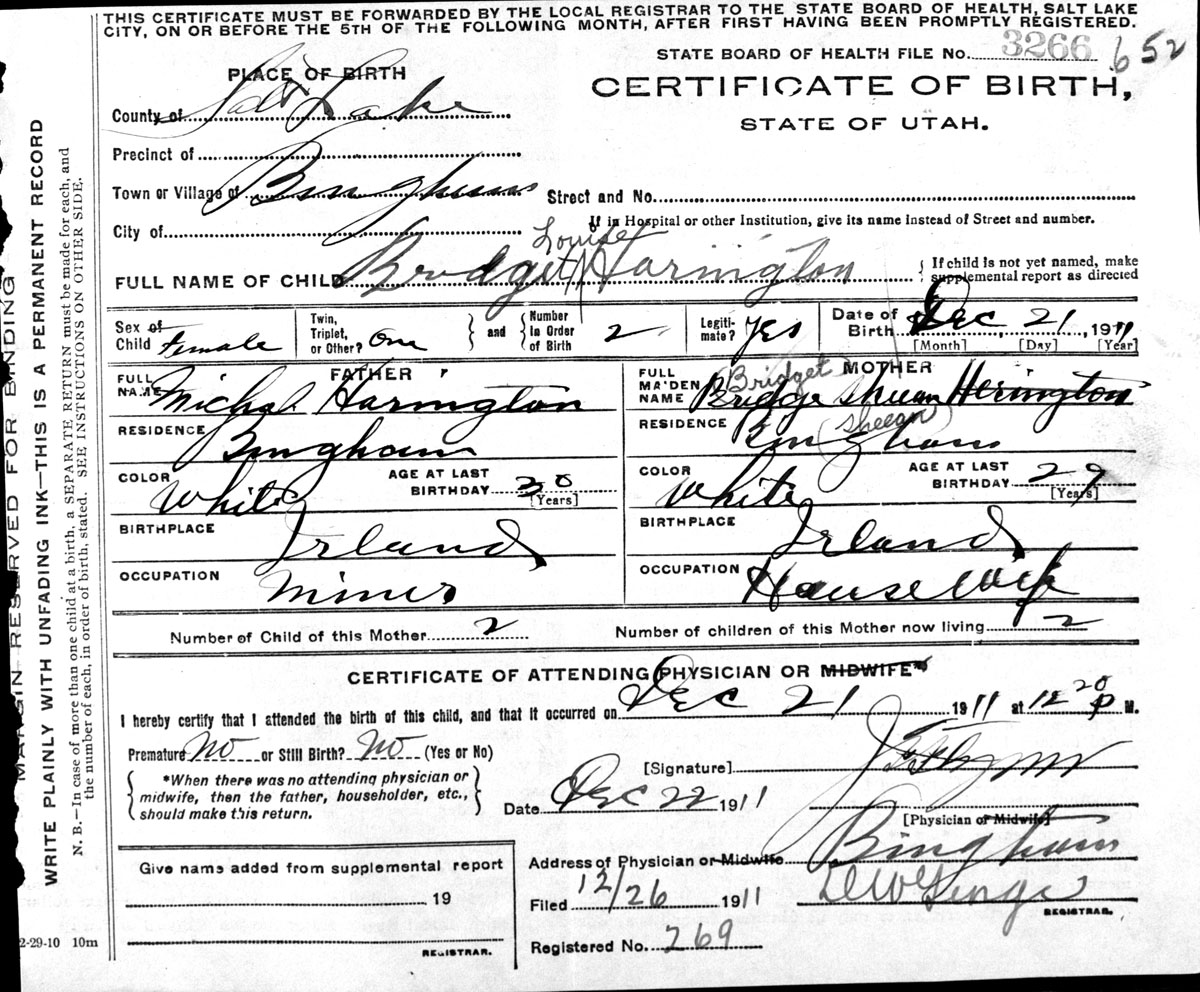 THIS CERTIFICATE MUST BE FORWARDED BY THE LOCAL REGISTRAR TO THE STATE BOARD OF HEALTH, SALT LAKE
CITY, ON OR BEFORE THE 5TH OF THE FOLLOWING MONTH, AFTER FIRST HAVING BEEN PROMPTLY REGISTERED.
STATE BOARD OF HEALTH FILE No. 3266 652
PLACE OF BIRTH
CERTIFICATE OF BIRTH,
STATE OF UTAH.
County of Salt Lake
Precinct of
Town or Village of Bingham
Street and No.
City of
If in Hospital or other Institution, give its name instead of Street and number.
Louise
FULL NAME OF CHILD Bridget Harington
If child is not yet named, make
supplemental report as directed
Sex of Child Female
Twin, Triplet, or Other? One
and
Number in Order of Birth 2
Legiti-mate? Yes
Date of Birth Dec 21 1911
[Month] [Day] [Year]
FATHER
FULL NAME Michal Harington
RESIDENCE Bingham
COLOR White
AGE AT LAST BIRTHDAY 30
[Years]
BIRTHPLACE Irland
OCCUPATION Miner
MOTHER
Bridget
FULL MAIDEN NAME Bridge Sheean Herington
(Sheean)
RESIDENCE Bingham
COLOR White
AGE AT LAST BIRTHDAY 29
[Years]
BIRTHPLACE Irland
OCCUPATION House Wife
Number of Child of this Mother 2
Number of children of this Mother now living 2
CERTIFICATE OF ATTENDING PHYSICIAN OR MIDWIFE*
I hereby certify that I attended the birth of this child, and that it occurred on Dec 21 1911 at 12 20 P M.
Premature No or Still Birth? No (Yes or No)
*When there was no attending physician or
midwife, then the father, householder, etc.,
should make this return.
[Signature]
Date Dec 22 1911
[Physician or Midwife]
Give name added from supplemental report
19
REGISTRAR.
Address of Physician or Midwife Bingham
Filed 12/26 1911
REGISTRAR.
Registered No. 269
2-29-10 10m
MARGIN RESERVED FOR BINDING
WRITE PLAINLY WITH UNFADING INK—THIS IS A PERMANENT RECORD
N. B.—In case of more than one child at a birth, a SEPARATE RETURN must be made for each, and
the number of each, in order of birth, stated. SEE INSTRUCTIONS ON OTHER SIDE.